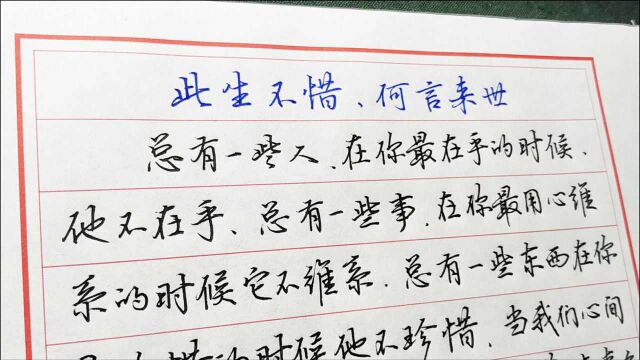 此生不惜、何言来世
总有一些人、在你最在乎的时候、
他不在乎、总有一些事、在你最用心维
系的时候它不维系、总有一些东西在你
惜的时候他不珍惜、当我们心间